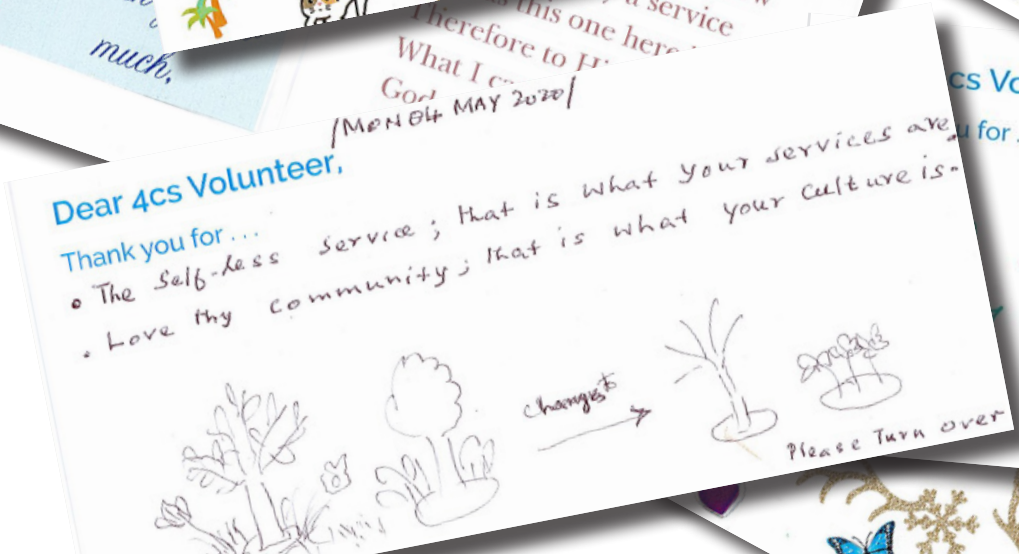 much,
a service
this one here
Therefore to
What I
God
/MON 04 MAY 2020/
Dear 4cs Volunteer,
Thank you for . . .
• The Self-Less Service; that is what your services are.
• Love thy community; that is what your culture is.
changes to
Please Turn over
cs Vo
u for .